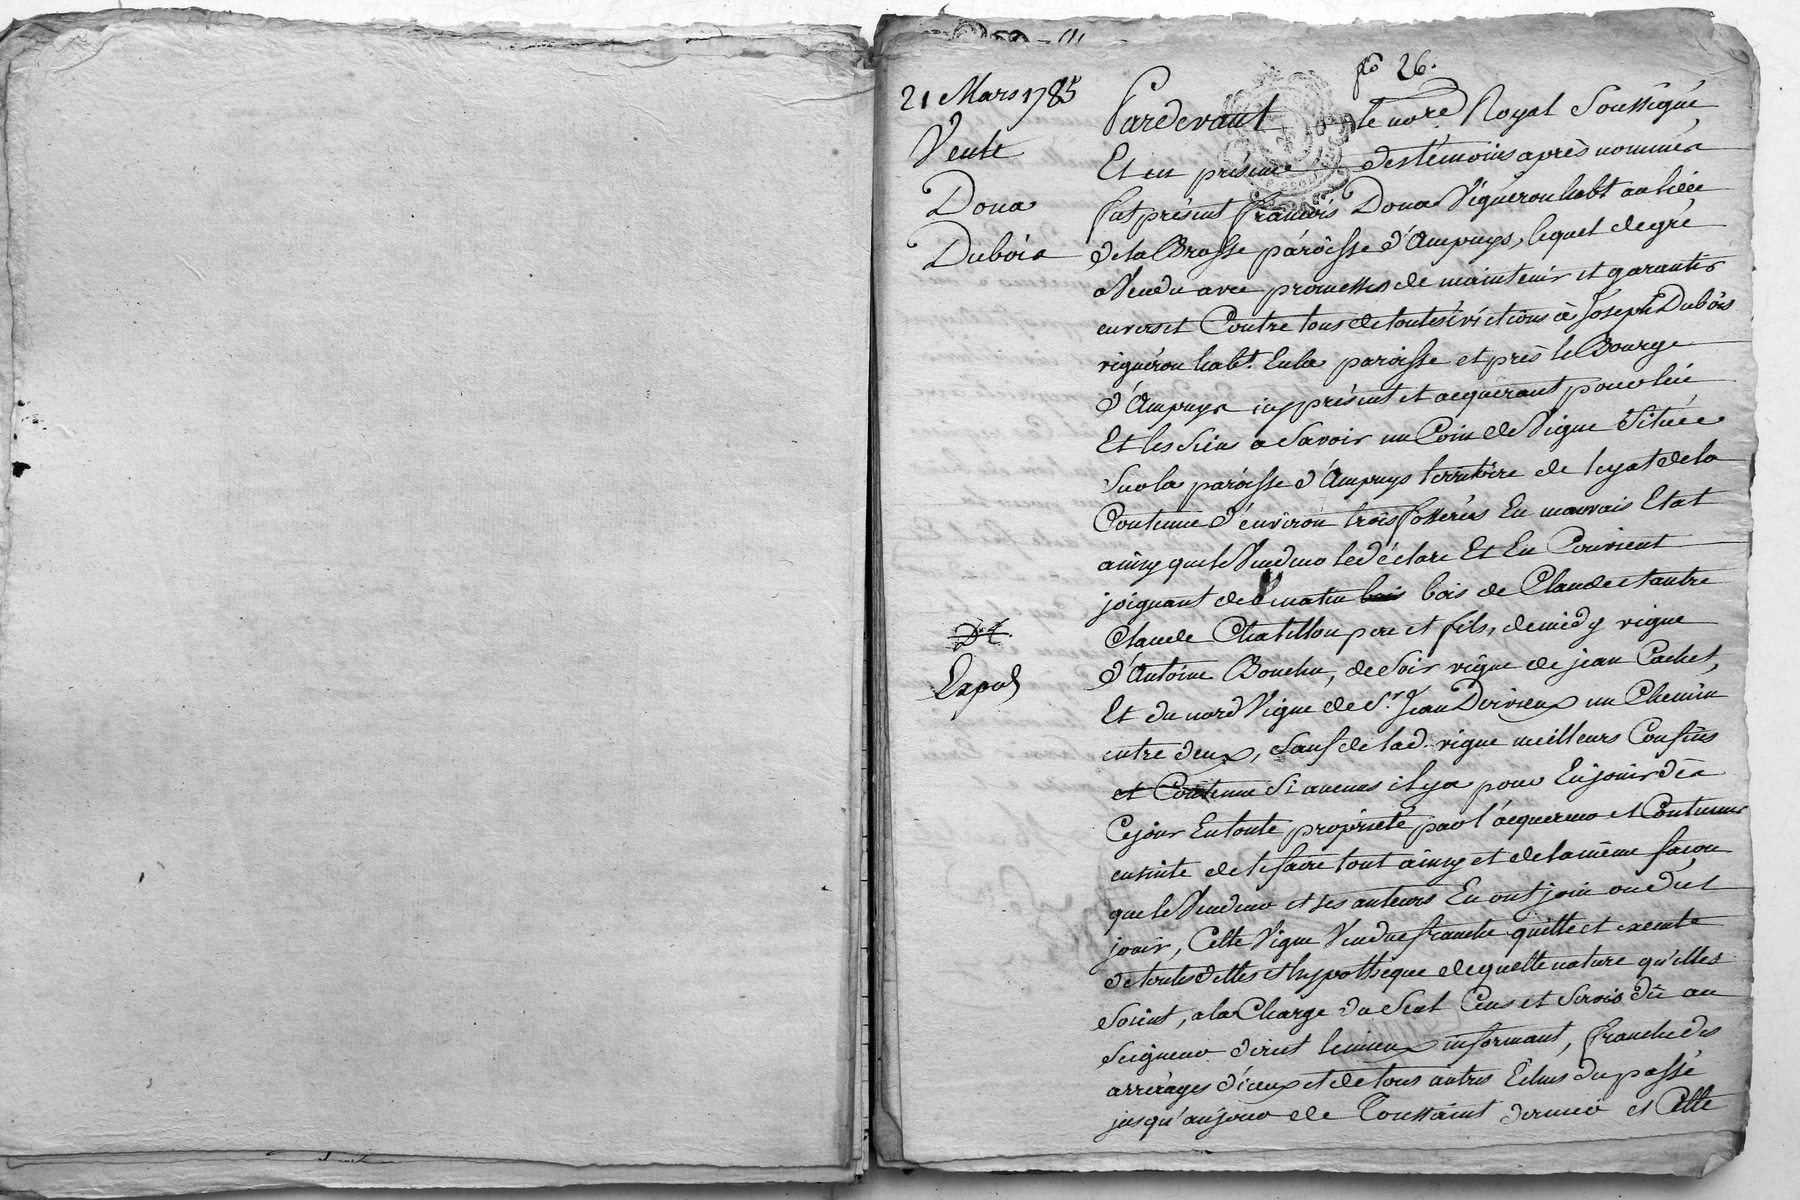 fo 26.
21 Mars 1785
Vente
Dona
Dubois
Pardevant le nore Royal Soussigné
Et en présence des témoins après nommés
fut présent francois Dona Vigneron habt au lieu
de la Brosse paroisse d'Ampuys, lequel de gré
a Vendu avec promesses de maintenir et garantir
envers et Contre tous de toutes évictions à Joseph Dubois
vigneron habt. En la paroisse et près le Bourg
d'Ampuys icy présent et acquerant pour lui
Et les siens a Savoir un Coin de Vigne Située
Sur la paroisse d'Ampuys territoire de leyat de la
Contenue d'environ trois fosserées En mauvais Etat
ainsy que le Vendeur le déclare Et En Convient
joignant de matin bois bois de Claude et autre
Claude Chatillon pere et fils, de midy vigne
d'Antoine Bouchu, de Soir vigne de jean Cachet,
Et du nord Vigne de Sr. Jean Dervieux un Chemin
entre deux, Sauf de lad. vigne meilleurs Confins
et Contenue Si aucuns il y a pour En jouir dès
Ce jour En toute propriété par l'acquereur et Continuer
ensuite de le faire tout ainsy et de la même façon
que le Vendeur et ses auteurs En ont joui ou dut
jouir, Cette Vigne Vendue franche quitte et exempte
de toutes dettes et hypotheque de quelle nature qu'elles
Soient, a la Charge du Seul Cens et Servis dû au
Seigneur direct le mieux informant, franche des
arrérages d'iceux et de tous autres Echus du passé
jusqu'au jour de Toussaint dernier et Cette
Dt.
Expdé